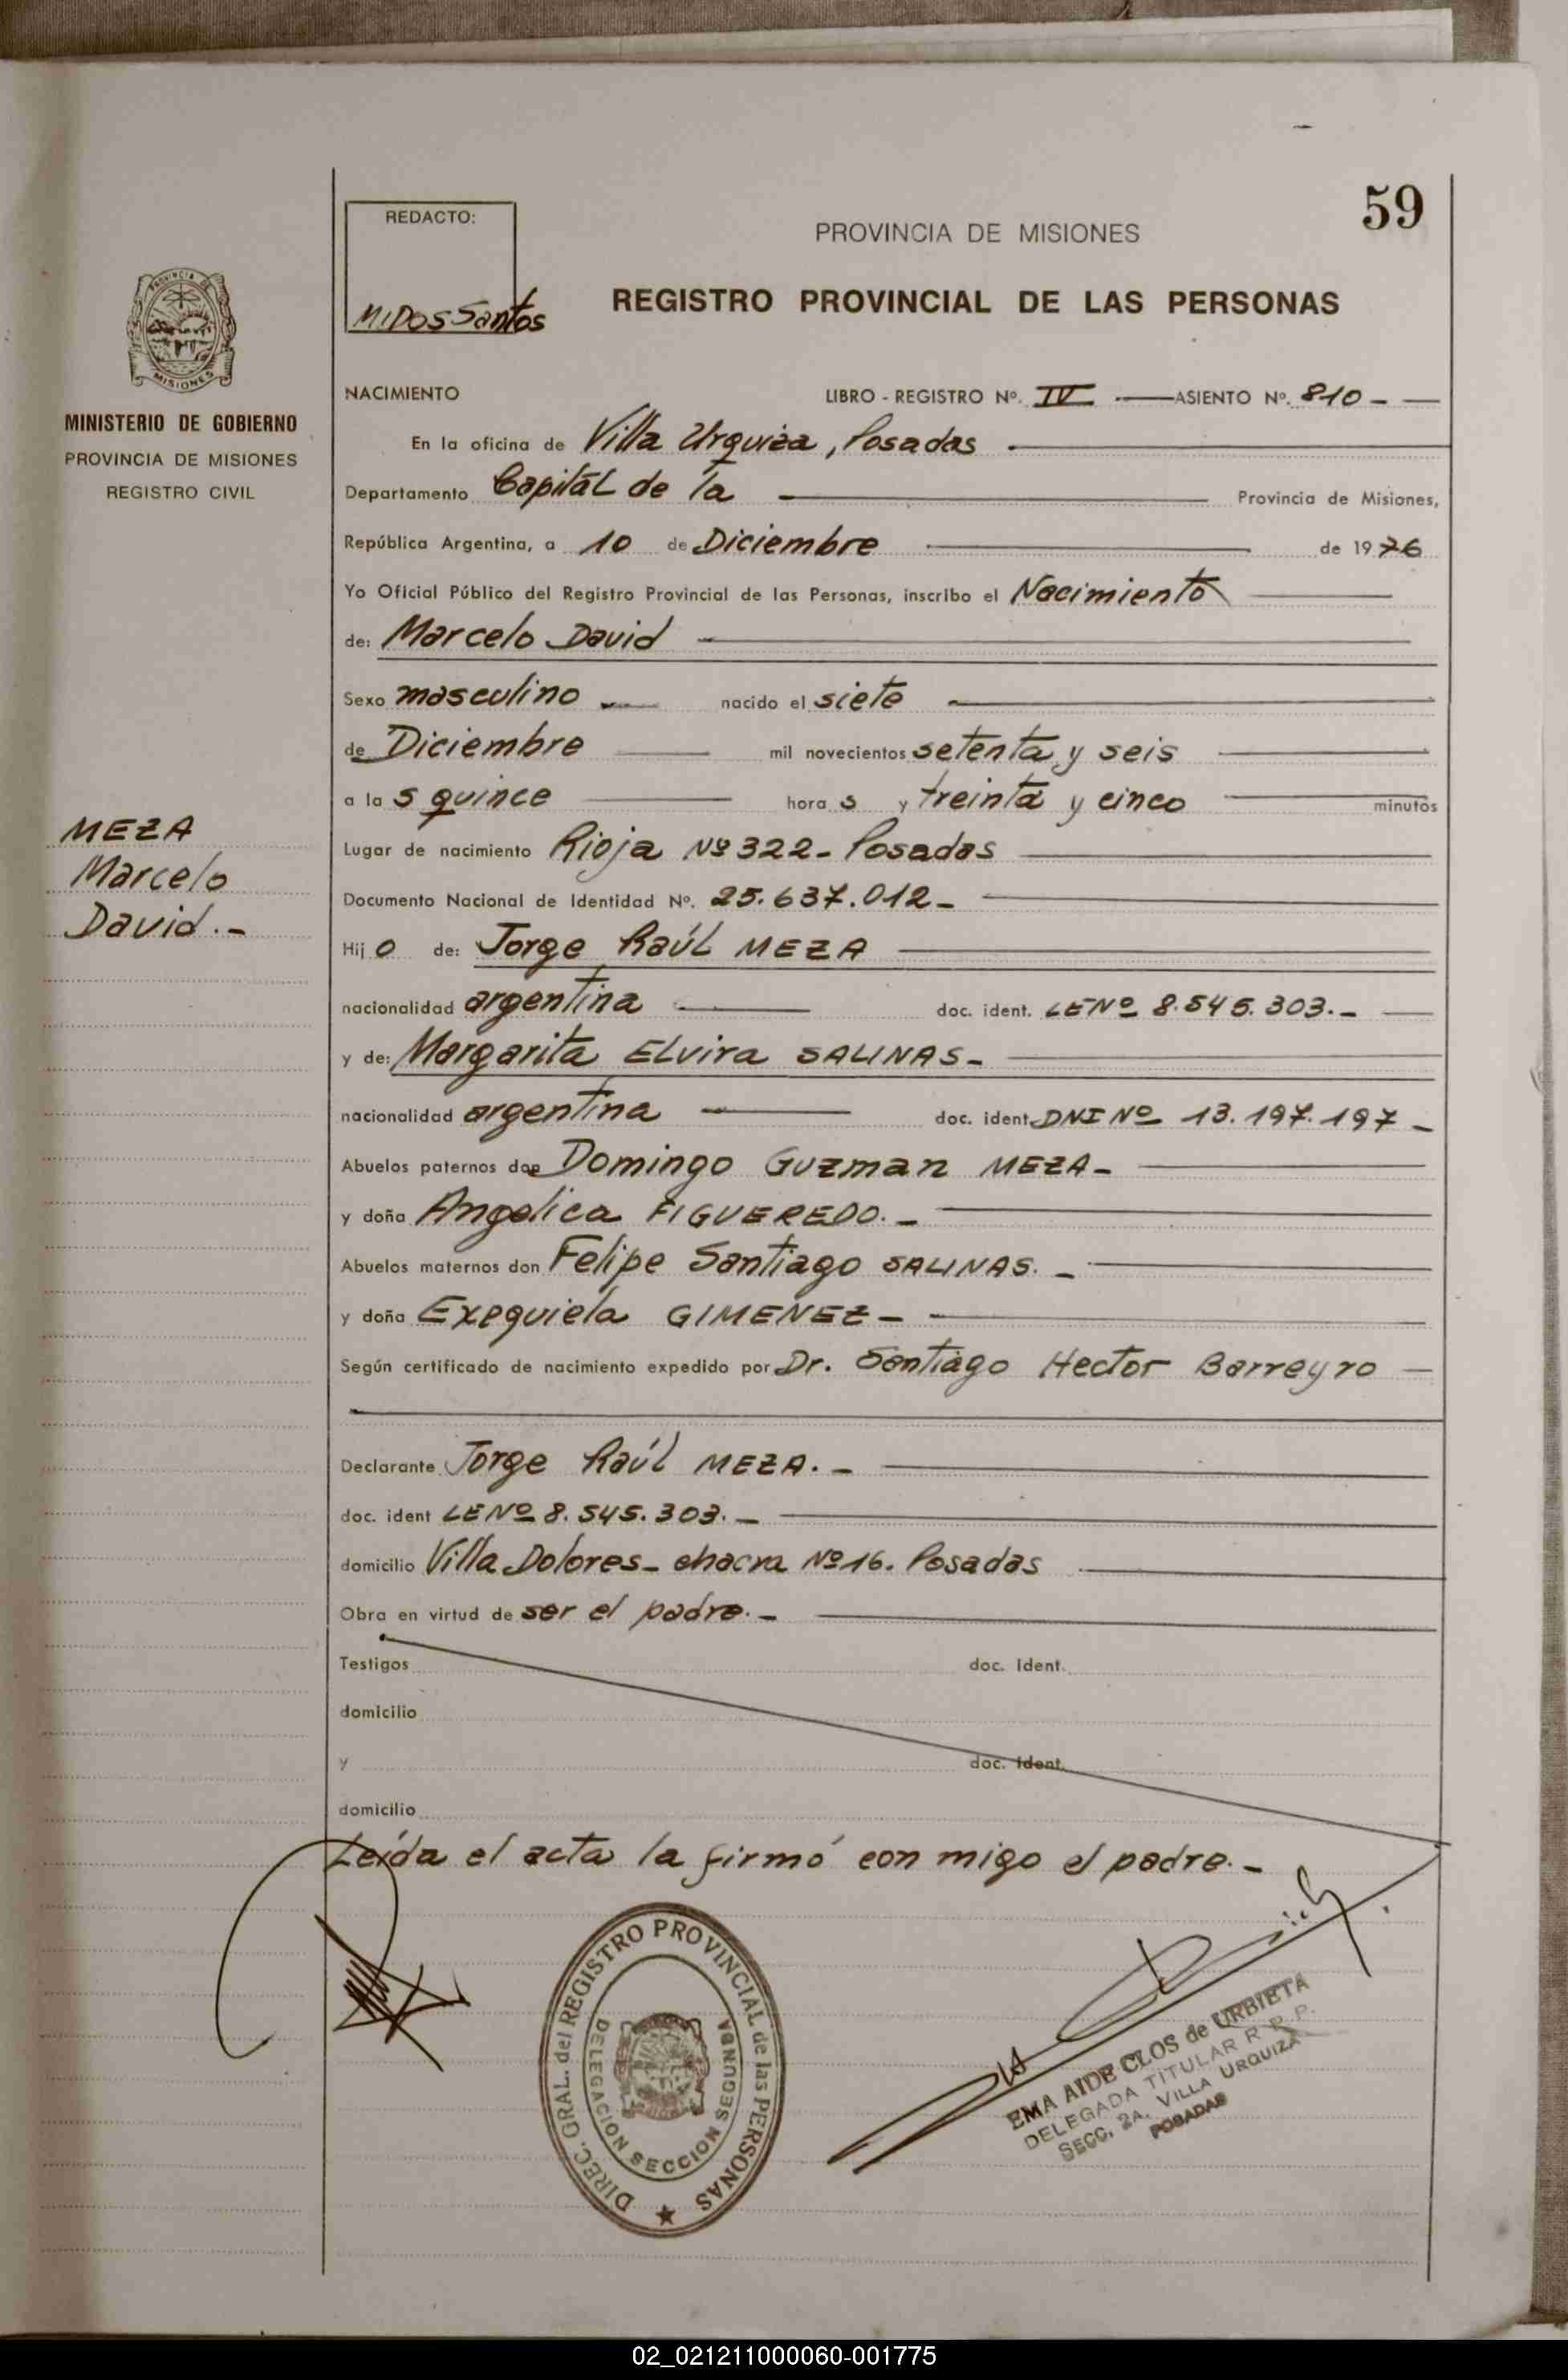 59
REDACTO:
MIDosSantos
PROVINCIA DE MISIONES
REGISTRO PROVINCIAL DE LAS PERSONAS
PROVINCIA DE
MISIONES
MINISTERIO DE GOBIERNO
PROVINCIA DE MISIONES
REGISTRO CIVIL
NACIMIENTO LIBRO - REGISTRO Nº. IV — ASIENTO Nº. 810 - —
En la oficina de Villa Urquiza, Posadas —
Departamento Capital de la — Provincia de Misiones,
República Argentina, a 10 de Diciembre — de 1976
Yo Oficial Público del Registro Provincial de las Personas, inscribo el Nacimiento —
de: Marcelo David —
Sexo masculino — nacido el siete —
de Diciembre — mil novecientos setenta y seis —
a la s quince — hora s y treinta y cinco — minutos
Lugar de nacimiento Rioja Nº 322 - Posadas —
Documento Nacional de Identidad Nº. 25.637.012 - —
MEZA
Marcelo
David.-
Hij o de: Jorge Raúl MEZA —
nacionalidad argentina — doc. ident. LE Nº 8.545.303.- —
y de: Margarita Elvira SALINAS - —
nacionalidad argentina — doc. ident. DNI Nº 13.197.197 -
Abuelos paternos don Domingo Guzman MEZA - —
y doña Angelica FIGUEREDO. - —
Abuelos maternos don Felipe Santiago SALINAS. - —
y doña Exequiela GIMENEZ - —
Según certificado de nacimiento expedido por Dr. Santiago Hector Barreyro —
Declarante Jorge Raúl MEZA. - —
doc. ident LE Nº 8.545.303. - —
domicilio Villa Dolores - chacra Nº 16. Posadas —
Obra en virtud de ser el padre. - —
Testigos doc. ident.
domicilio
y doc. ident.
domicilio
Leída el acta la firmó con migo el padre. -
DIREC. GRAL. del REGISTRO PROVINCIAL de las PERSONAS
DELEGACION SECCION SEGUNDA
EMA AIDE CLOS de URBIETA
DELEGADA TITULAR R. P. P.
SECC. 2A. VILLA URQUIZA
POSADAS
02_021211000060-001775